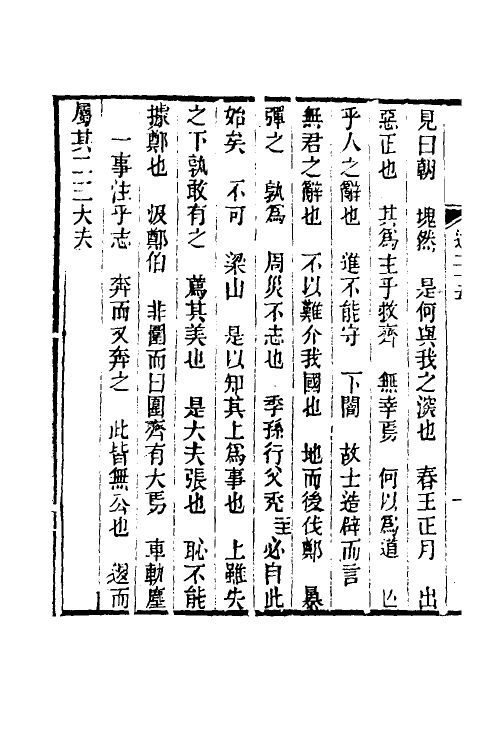 見曰朝　塊然　是何與我之深也　春王正月　出
惡正也　其為主乎救齊　無幸焉　何以為道
乎人之辭也　進不能守　下闇　故士造辟而言
無君之辭也　不以難介我國也　地而後伐鄭　暴
彈之　孰為　周災不志也　季孫行父禿　至必自此
始矣　不可　梁山　是以知其上為事也　上雖失
之下孰敢有之　薦其美也　是大夫張也　恥不能
據鄭也　汲鄭伯　非圍而曰圍齊有大焉　車軌塵
一事注乎志　奔而又奔之　此皆無公也　遏而
屬其二三大夫